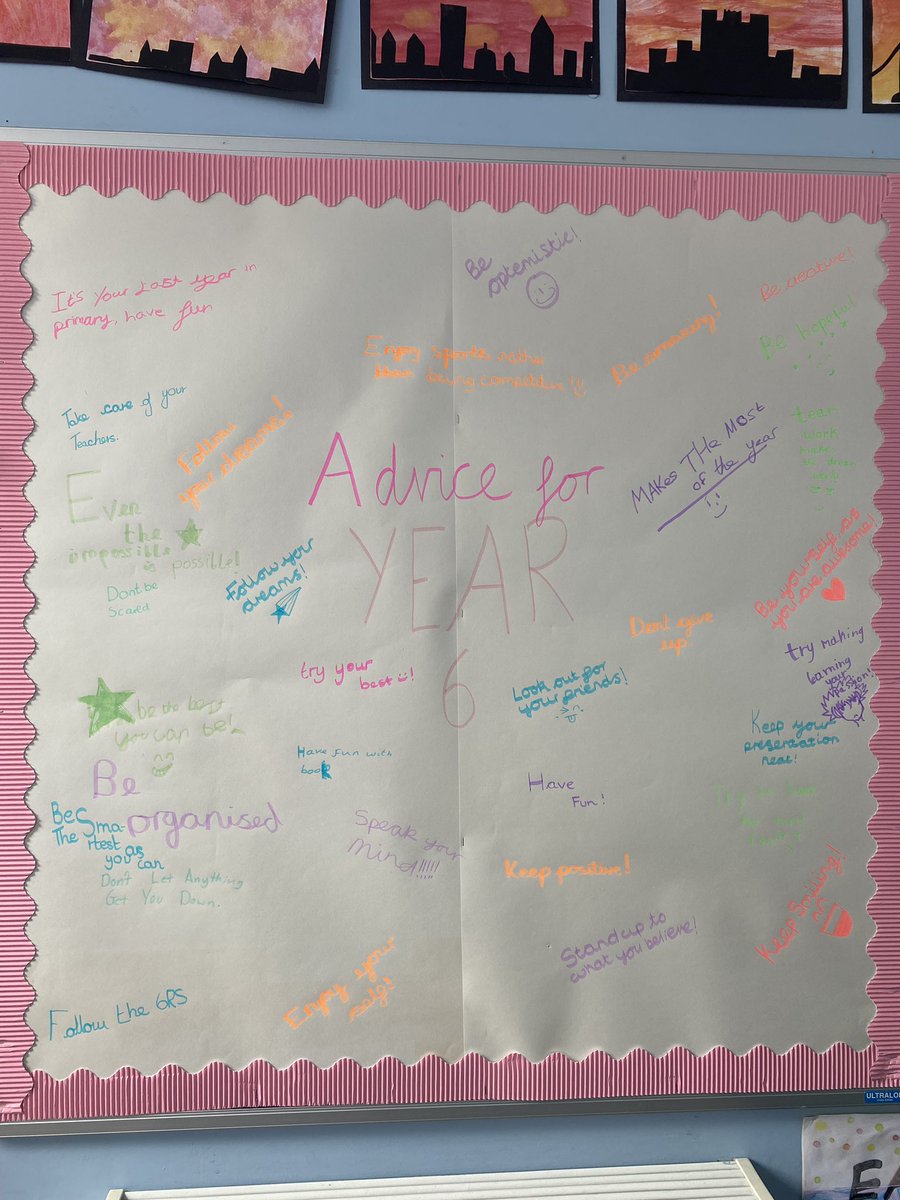 It's Your Last year in
primary, have fun
Be
optemistic!
Be creative!
Be hopeful
Enjoy sports rather
than being competitive!
Be amazing!
Take care of your
Teachers.
Follow
your dreams!
Advice for
YEAR
6
MAKES THE MOST
of the year
team
work
makes
the dream
work
Even
the
impossible
is possible!
Dont be
Scared
Follow your
dreams!
Be yourself as
you are awesome!
Dont give
up!
try your
best
Look out for
your friends!
try making
learning
your
passion!
be the best
you can be!
Keep your
presentation
neat!
Have fun with
book
Be
organised
Have
Fun!
Be
The Sma-
rtest as
you can
Speak your
Mind!!!!!
Don't Let Anything
Get You Down.
Keep positive!
Keep Smiling!
Stand up to
what you believe!
Follow the 6RS
Enjoy your
self!